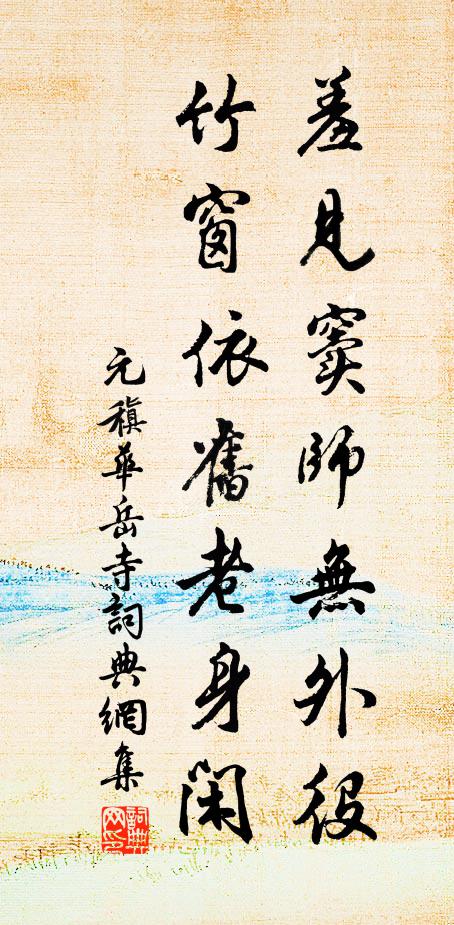 羞見竇師無外役
竹窗依舊老身閑
元稹華岳寺詞典網集
詞典網印